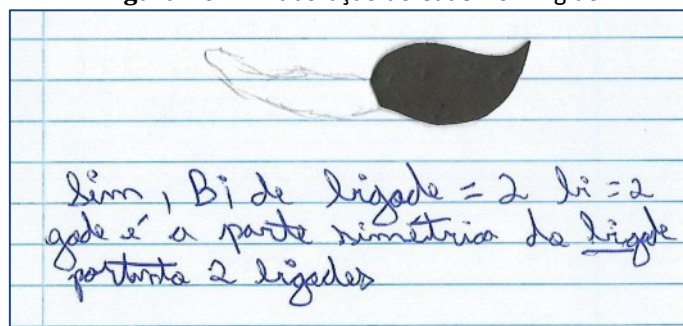 Sim, Bi de bigode = 2 bi = 2
gode é a parte simétrica do bigode
portanto 2 bigodes